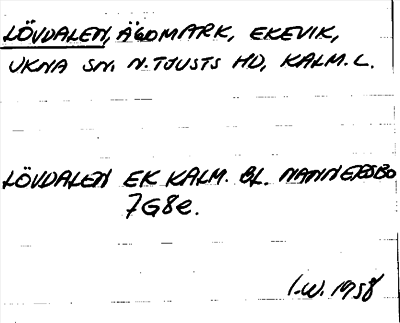 LÖVDALEN, ÄGOMARK, EKEVIK,
UKNA SN. N. TJUSTS HD, KALM. L.
LÖVDALEN EK KALM. BL. NANNERSBO
7G8e.
I.W. 1958